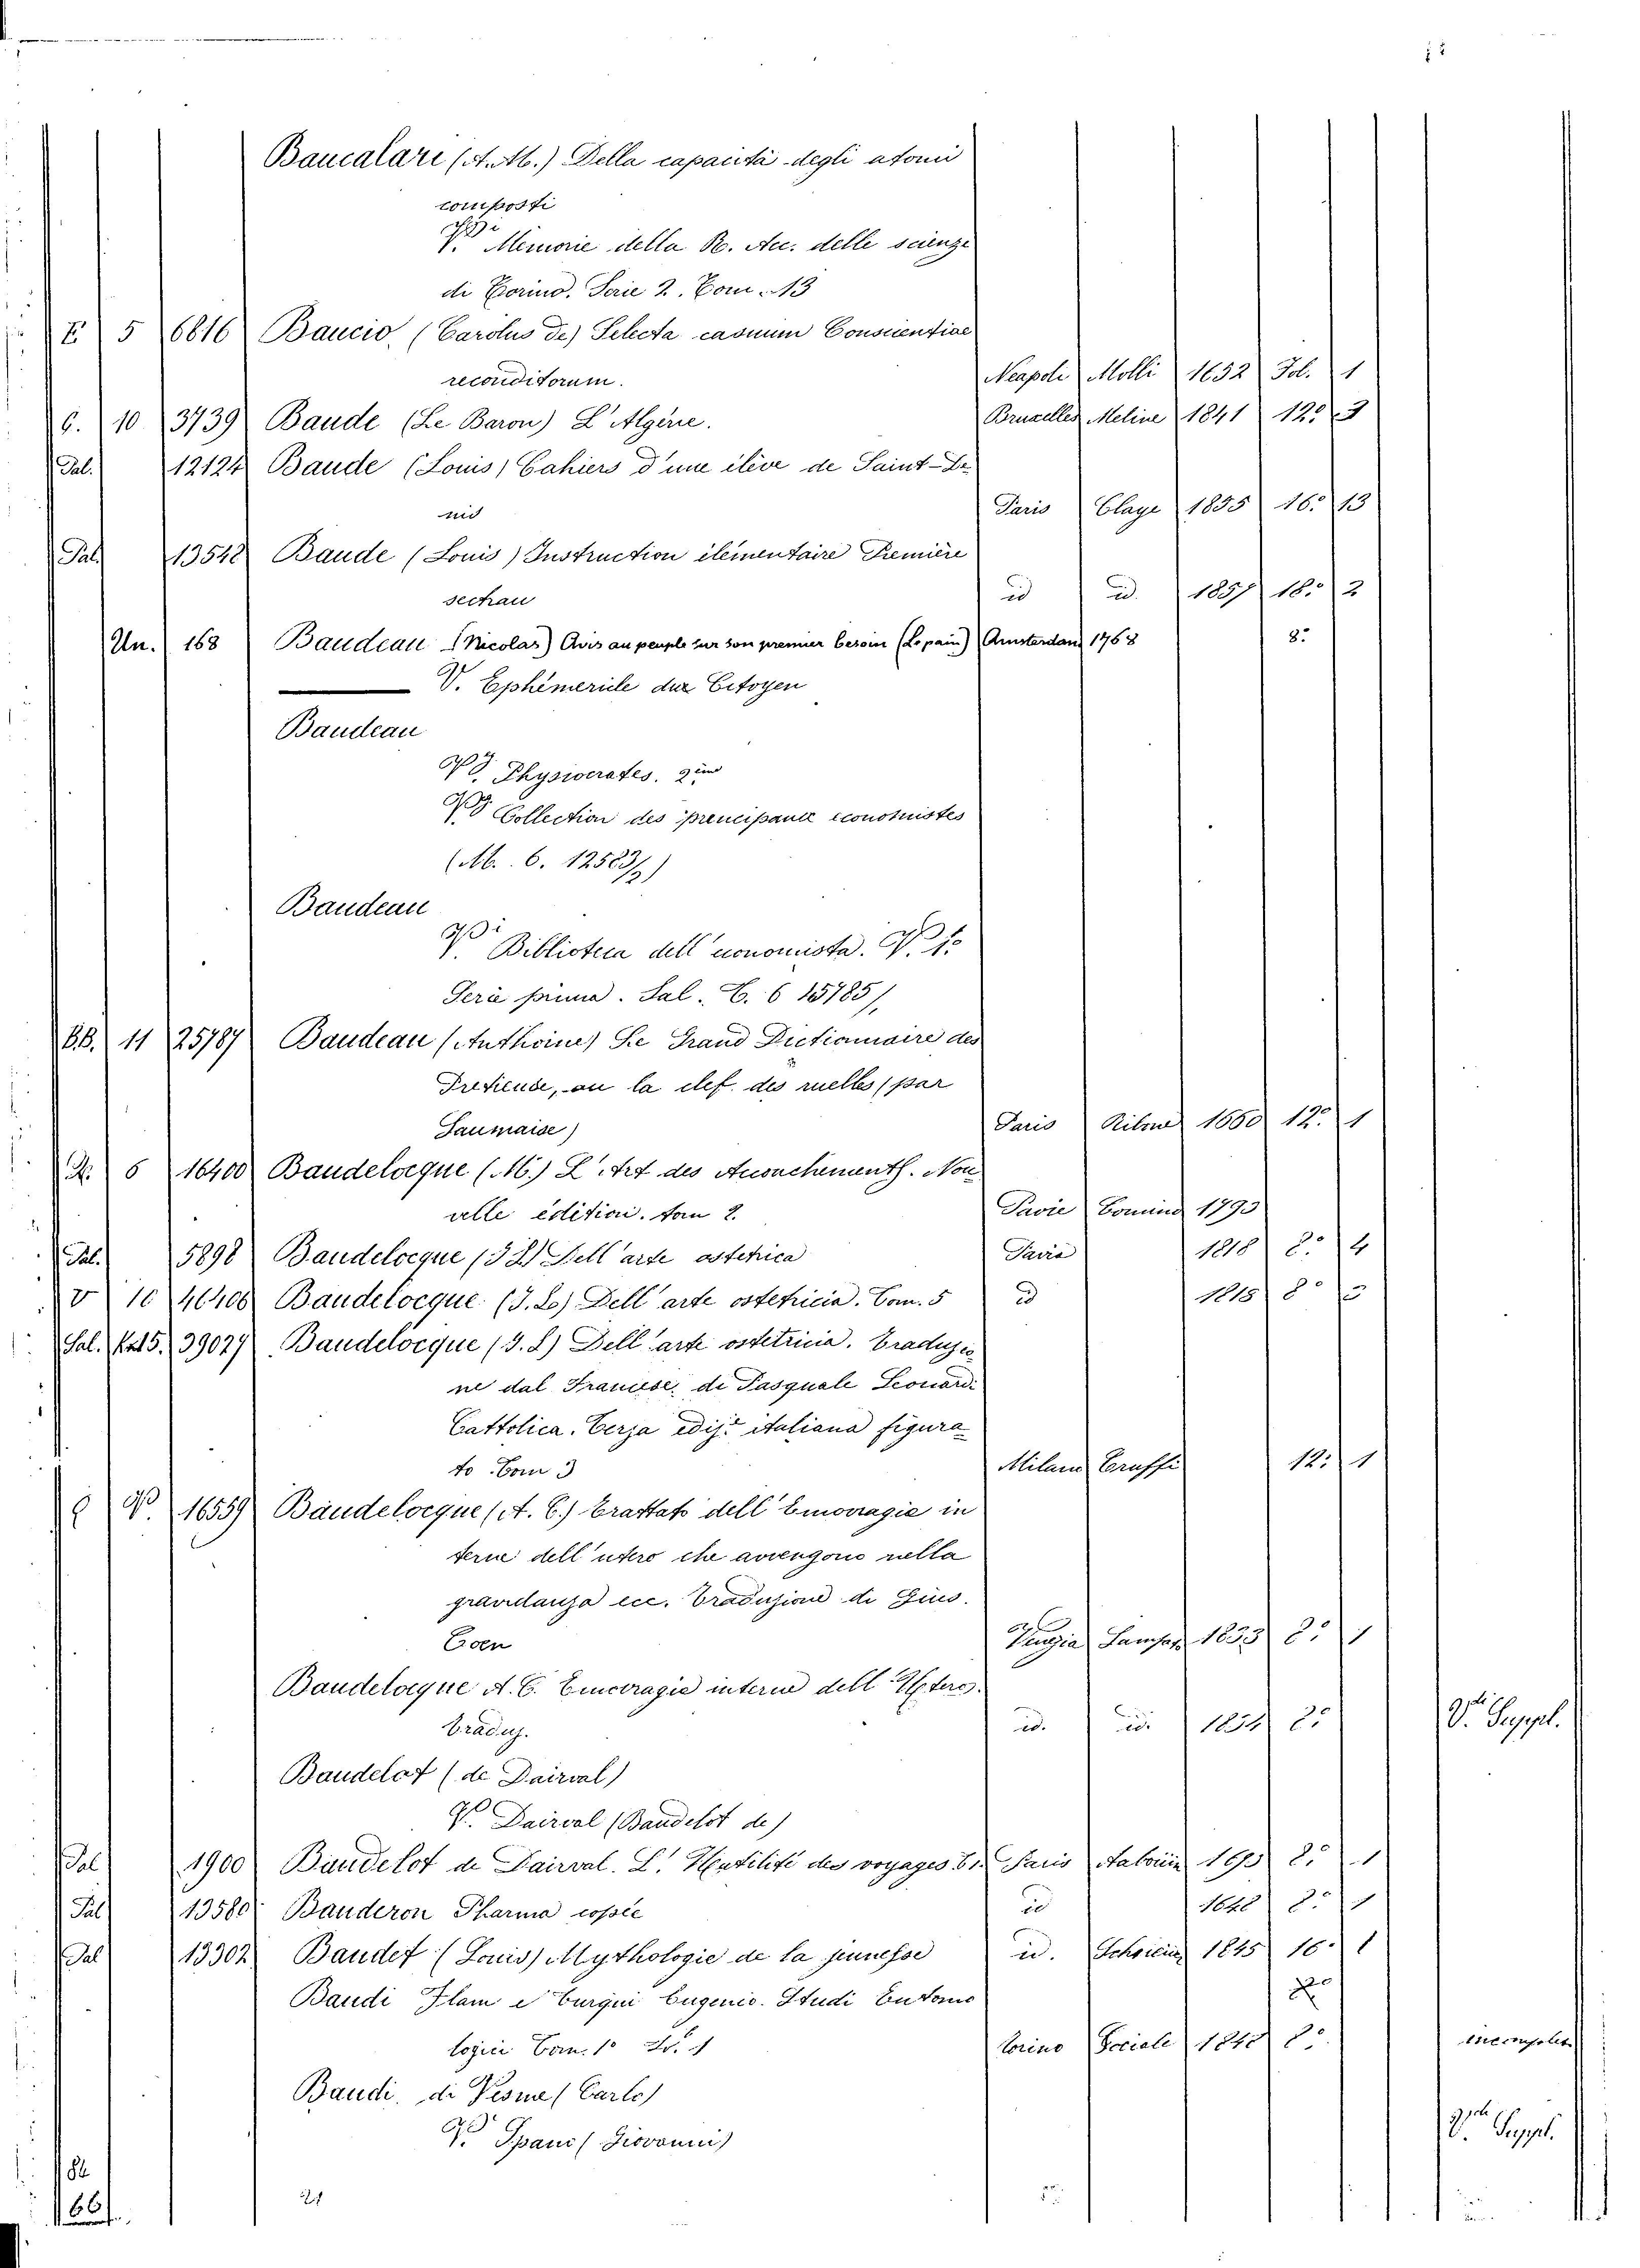 Baucalari (A. M.) Della capacità degli atomi
composti
V. Memorie della R. Acc. delle scienze
di Torino. Serie 2. Tom. 13
E 5 6816 Baucio, (Carolus de) Selecta casuum Conscientiae
reconditorum. Neapoli Molli 1632 Fol. 1
6. 10 3739 Baude (Le Baron) L'Algérie. Bruxelles Meline 1841 12.º 3
Pal. 12124 Baude (Louis) Cahiers d'une élève de Saint-De
nis Paris Claye 1855 16.º 13
Pal. 13548 Baude (Louis) Instruction élémentaire Première
sectrau id id. 1857 18.º 2
Un. 168 Baudeau (Nicolas) Avis au peuple sur son premier besoin (Le pain) Amsterdam 1768 8.º
V. Ephémeride du Citoyen
Baudeau
V. Physiocrates.
V. Collection des principaux économistes
(M. 6. 12583/2)
Baudeau
V. Biblioteca dell' economista. V. 1.º
Serie prima. Sal. C. 6 15785/
BB. 11 25787 Baudeau (Anthoine) Le Grand Dictionnaire des
Pretieuse, ou la clef des ruelles (par
Saumaise) Paris Ribou 1660 12.º 1
6 16400 Baudelocque (M.) L'Art des Accouchements. Nou
velle édition. tom 2. Pavie Comino 1793
Pal. 5898 Baudelocque (J. L.) Dell'arte ostetrica Pavia 1818 8.º 4
V 10 46406 Baudelocque (J. L.) Dell'arte ostetricia. Tom. 5 id 1818 8.º
Sal. 15. 39027 Baudelocque (J. L) Dell'arte ostetricia. Traduzio
ne dal Francese, di Pasquale Leonardi
Cattolica. Terza ediz. italiana figura
to Tom 3 Milano Truffi 12.º 1
V. 16559 Baudelocque (A. C.) Trattato dell' Emorragie in
terne dell' utero che avvengono nella
gravidanza ecc. Traduzione di Gius.
Coen Venezia 1833 8.º 1
Baudelocque A. C. Emorragie interne dell' Utero.
traduz. id. id. 1834 8.º V. Suppl.
Baudelot (de Dairval)
V. Dairval (Baudelot de)
Pal 1900 Baudelot de Dairval. L' Utilité des voyages Paris 8.º 1
Pal 13580 Bauderon Pharma copée id 1648 8.º
Pal 13302 Baudet (Louis) Mythologie de la jeunesse id. 1845 16. 1
Baudi Flam e Turqui Eugenio. Studi Entomo
logici Tom. 1º Torino Sociale 1848 8.º incompleto
Baudi, di Vesme (Carlo)
V. Spani (Giovanni) V. Suppl.
84
66
21